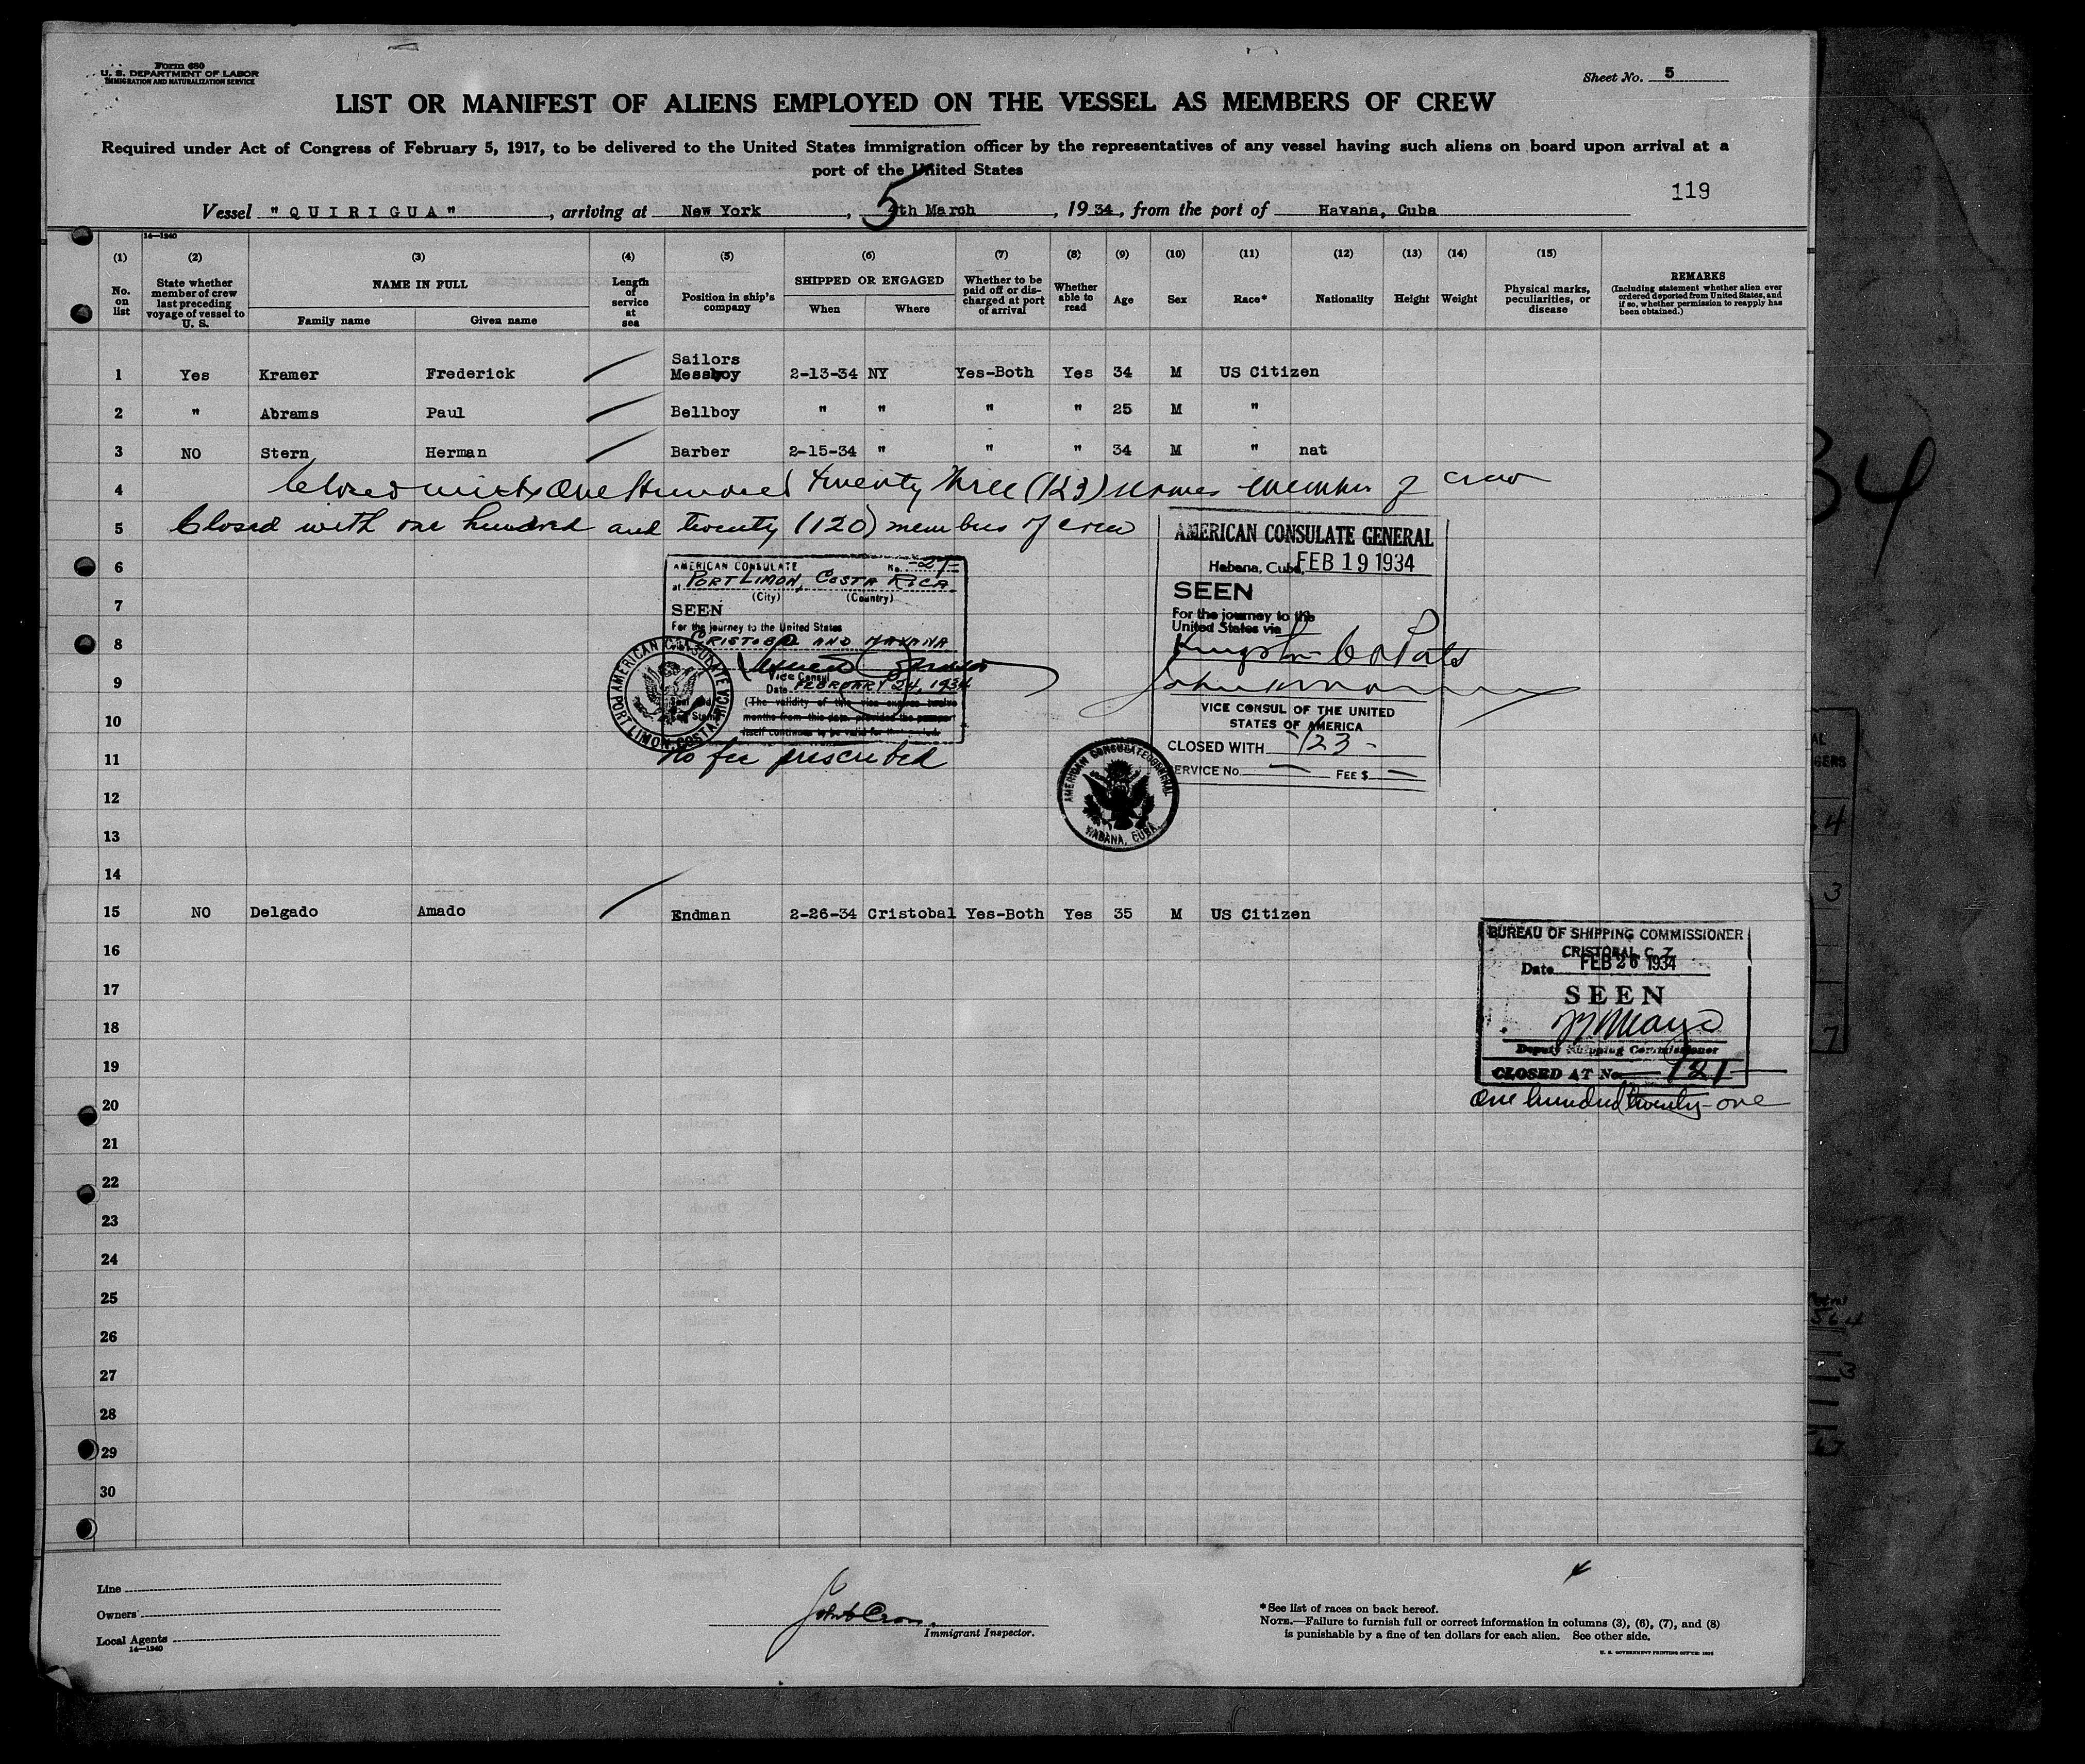 Form 680
U. S. DEPARTMENT OF LABOR
IMMIGRATION AND NATURALIZATION SERVICE
Sheet No. 5
LIST OR MANIFEST OF ALIENS EMPLOYED ON THE VESSEL AS MEMBERS OF CREW
Required under Act of Congress of February 5, 1917, to be delivered to the United States immigration officer by the representatives of any vessel having such aliens on board upon arrival at a
port of the United States
119
Vessel "QUIRIGUA", arriving at New York, 5 4th March, 1934, from the port of Havana, Cuba
14—1240
(1) (2) (3) (4) (5) (6) (7) (8) (9) (10) (11) (12) (13) (14) (15)
No. on list
State whether member of crew last preceding voyage of vessel to U. S.
NAME IN FULL
Family name Given name
Length of service at sea
Position in ship's company
SHIPPED OR ENGAGED
When Where
Whether to be paid off or discharged at port of arrival
Whether able to read
Age
Sex
Race*
Nationality
Height
Weight
Physical marks, peculiarities, or disease
REMARKS
(Including statement whether alien ever ordered deported from United States, and if so, whether permission to reapply has been obtained.)
1 Yes Kramer Frederick Sailors Messboy 2-13-34 NY Yes-Both Yes 34 M US Citizen
2 " Abrams Paul Bellboy " " " " 25 M "
3 NO Stern Herman Barber 2-15-34 " " " 34 M " nat
4 Closed with One Hundred Twenty Three (123) names member of crew
5 Closed with one hundred and twenty (120) members of crew
6
7
8
9
10
11
12
13
14
AMERICAN CONSULATE No. -27-
at PORT LIMON, COSTA RICA
(City) (Country)
SEEN
For the journey to the United States
CRISTOBAL AND HAVANA
Vice Consul
Date FEBRUARY 24, 1934
(The validity of this visa expires twelve
months from this date, provided the passport
itself continues to be valid for that period.
AMERICAN CONSULATE
PORT LIMON, COSTA RICA
No fee prescribed
AMERICAN CONSULATE GENERAL
Habana, Cuba, FEB 19 1934
SEEN
For the journey to the
United States via
Kingston
VICE CONSUL OF THE UNITED
STATES OF AMERICA
CLOSED WITH -123-
SERVICE No. — FEE $ —
AMERICAN CONSULATE GENERAL
HABANA, CUBA
15 NO Delgado Amado Endman 2-26-34 Cristobal Yes-Both Yes 35 M US Citizen
16
17
18
19
20
21
22
23
24
25
26
27
28
29
30
BUREAU OF SHIPPING COMMISSIONER
CRISTOBAL C. Z.
Date FEB 26 1934
SEEN
Deputy Shipping Commissioner
CLOSED AT No. 121
One hundred twenty-one
34
Line
Owners
Local Agents
14—1240
Immigrant Inspector.
*See list of races on back hereof.
NOTE.—Failure to furnish full or correct information in columns (3), (6), (7), and (8)
is punishable by a fine of ten dollars for each alien. See other side.